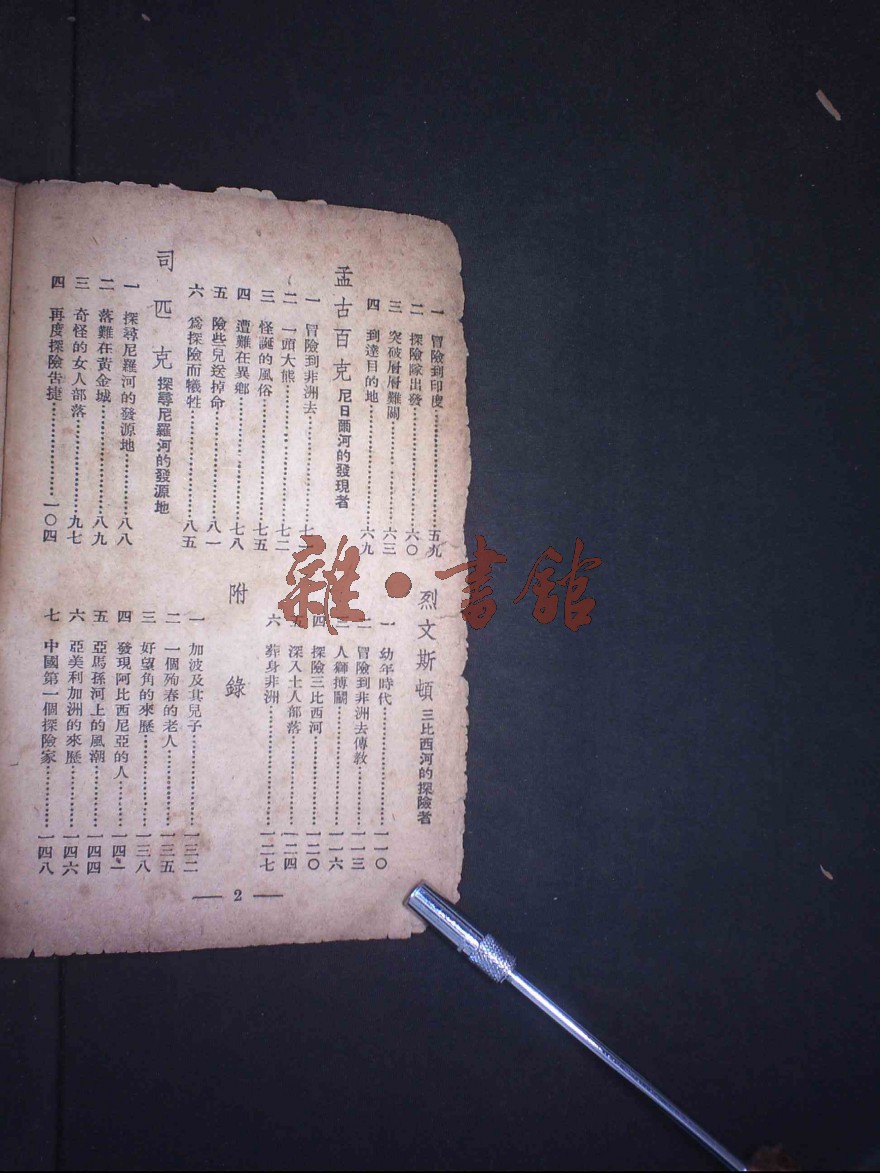 一 冒險到印度 五九
二 探險隊出發 六〇
三 突破層層難關 六三
四 到達目的地 六九
孟古百克 尼日爾河的發現者
一 冒險到非洲去
二 一頭大熊 七二
三 怪誕的風俗 七五
四 遭難在異鄉 七八
五 險些兒送掉命 八一
六 爲探險而犧牲 八五
司匹克 探尋尼羅河的發源地
一 探尋尼羅河的發源地 八八
二 落難在黃金城 八九
三 奇怪的女人部落 九七
四 再度探險告捷 一〇四
烈文斯頓 三比西河的探險者
一 幼年時代 一一〇
二 冒險到非洲去傳教 一一三
三 人獅搏鬭 一一六
四 探險三比西河 一二〇
五 深入土人部落 一二四
六 葬身非洲 一二七
附錄
一 加波及其兒子 一三二
二 一個殉春的老人 一三五
三 好望角的來歷 一三八
四 發現阿比西尼亞的人 一四一
五 亞馬孫河上的風潮 一四四
六 亞美利加洲的來歷 一四六
七 中國第一個探險家 一四八
— 2 —
雜·書館